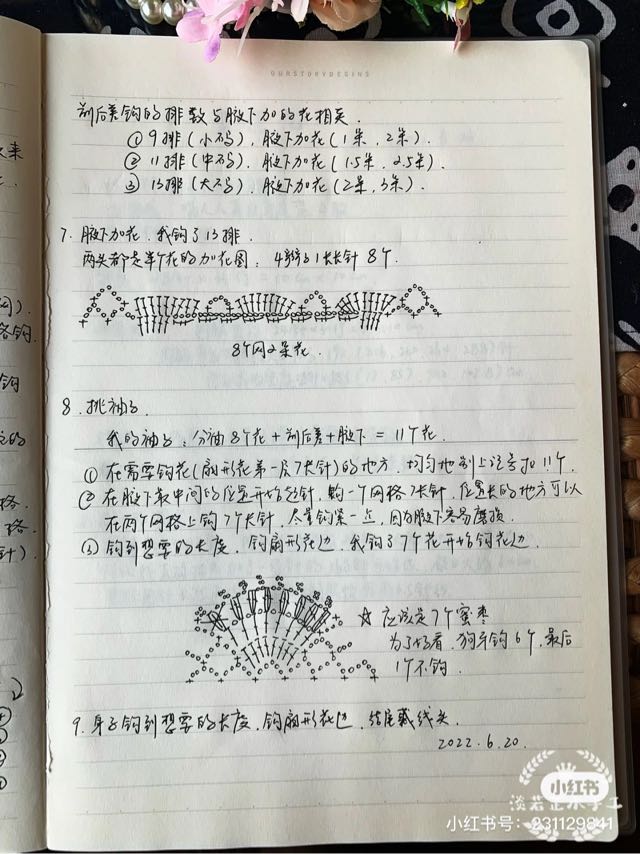 OURSTORYBEGINS
前后差钩的排数与腋下加的花相关.
① 9排(小码), 腋下加花(1朵, 2朵).
② 11排(中码). 腋下加花(1.5朵, 2.5朵).
③ 13排(大码). 腋下加花(2朵, 3朵).
7. 腋下加花. 我钩了13排.
两头都是半个花的加花图. 4辫子1长针 8个
8个网2朵花.
8. 挑袖子.
我的袖子: 分袖8个花+前后差+腋下=11个花.
① 在需要钩花(扇形花第一层7长针)的地方, 均匀地别上记号扣11个.
② 在腋下最中间的位置开始起针, 购一个网格7长针, 位置长的地方可以
在两个网格上钩7个长针, 尽量钩紧一点, 因为腋下容易磨损.
③ 钩到想要的长度, 钩扇形花边, 我钩了7个花开始钩花边.
☆ 应该是7个蜜枣
为了好看, 狗牙钩6个, 最后
1个不钩.
9. 身子钩到想要的长度, 钩扇形花边, 结尾藏线头.
2022.6.20.
小红书
小红书号: 231129841